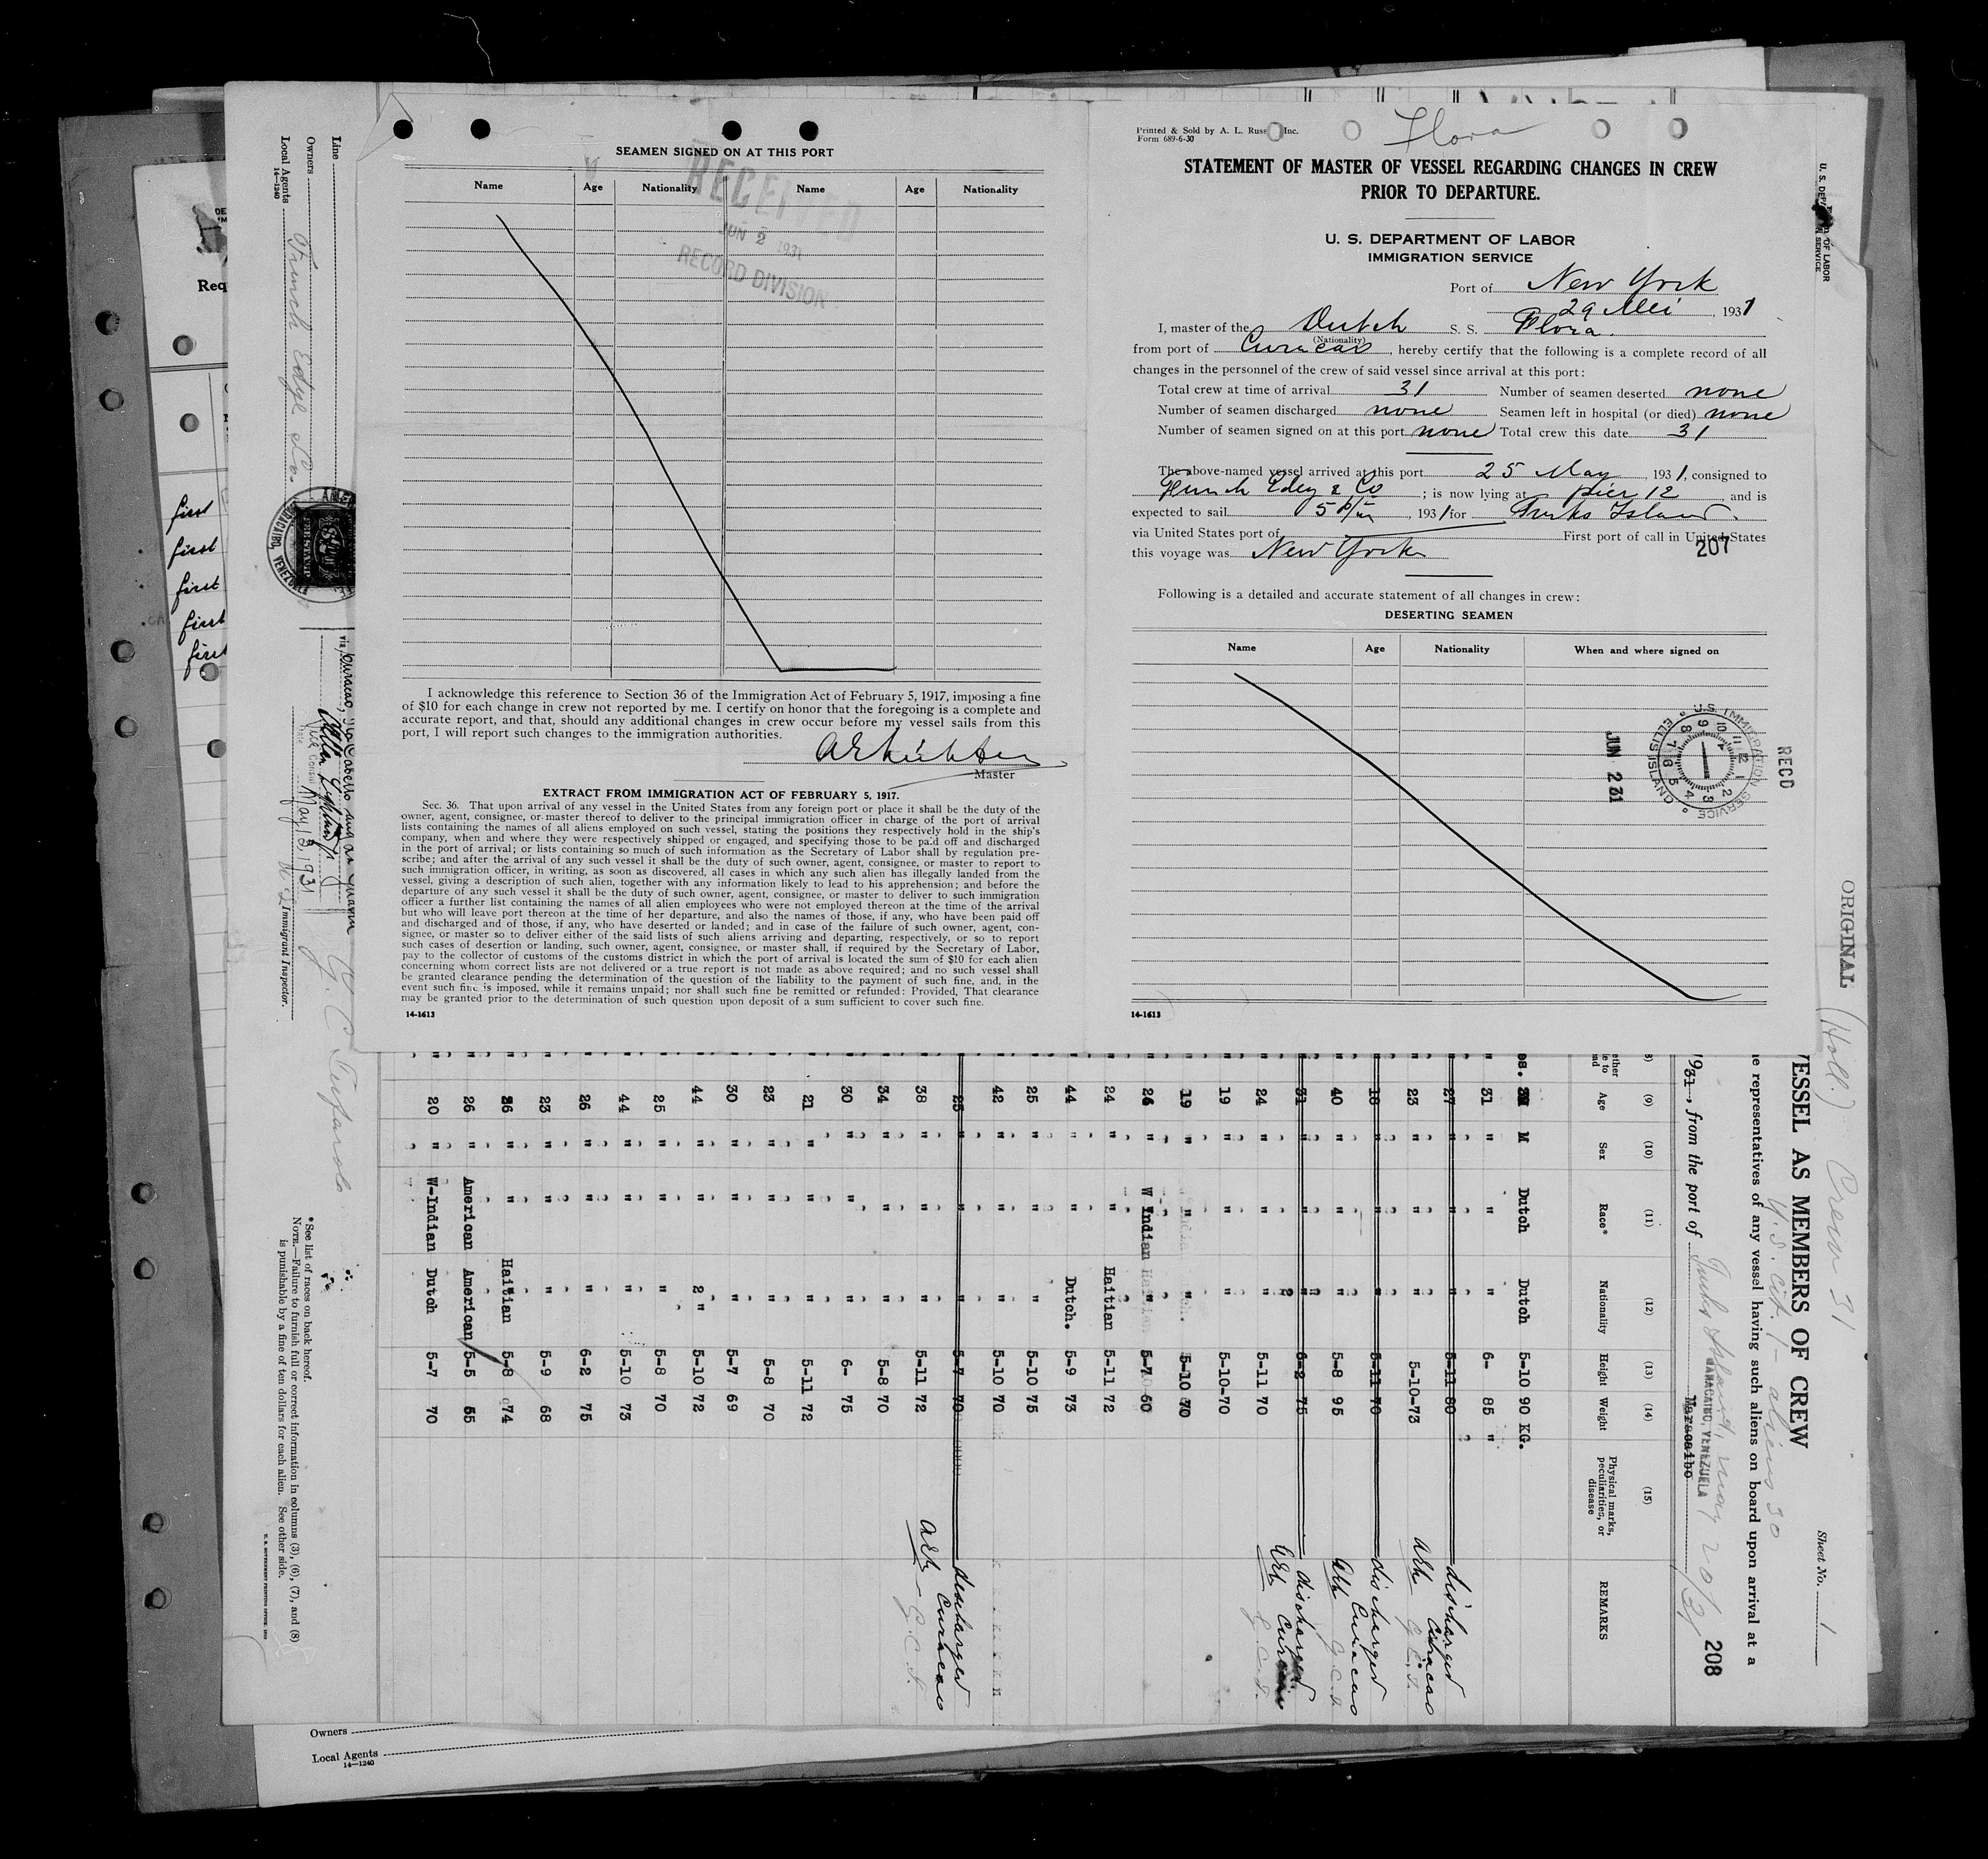 SEAMEN SIGNED ON AT THIS PORT
Name Age Nationality Name Age Nationality
RECEIVED
JUN 2 1931
RECORD DIVISION
I acknowledge this reference to Section 36 of the Immigration Act of February 5, 1917, imposing a fine
of $10 for each change in crew not reported by me. I certify on honor that the foregoing is a complete and
accurate report, and that, should any additional changes in crew occur before my vessel sails from this
port, I will report such changes to the immigration authorities.
Master
EXTRACT FROM IMMIGRATION ACT OF FEBRUARY 5, 1917.
Sec. 36. That upon arrival of any vessel in the United States from any foreign port or place it shall be the duty of the
owner, agent, consignee, or master thereof to deliver to the principal immigration officer in charge of the port of arrival
lists containing the names of all aliens employed on such vessel, stating the positions they respectively hold in the ship's
company, when and where they were respectively shipped or engaged, and specifying those to be paid off and discharged
in the port of arrival; or lists containing so much of such information as the Secretary of Labor shall by regulation pre-
scribe; and after the arrival of any such vessel it shall be the duty of such owner, agent, consignee, or master to report to
such immigration officer, in writing, as soon as discovered, all cases in which any such alien has illegally landed from the
vessel, giving a description of such alien, together with any information likely to lead to his apprehension; and before the
departure of any such vessel it shall be the duty of such owner, agent, consignee, or master to deliver to such immigration
officer a further list containing the names of all alien employees who were not employed thereon at the time of the arrival
but who will leave port thereon at the time of her departure, and also the names of those, if any, who have been paid off
and discharged and of those, if any, who have deserted or landed; and in case of the failure of such owner, agent, con-
signee, or master so to deliver either of the said lists of such aliens arriving and departing, respectively, or so to report
such cases of desertion or landing, such owner, agent, consignee, or master shall, if required by the Secretary of Labor,
pay to the collector of customs of the customs district in which the port of arrival is located the sum of $10 for each alien
concerning whom correct lists are not delivered or a true report is not made as above required; and no such vessel shall
be granted clearance pending the determination of the question of the liability to the payment of such fine, and, in the
event such fine is imposed, while it remains unpaid; nor shall such fine be remitted or refunded: Provided, That clearance
may be granted prior to the determination of such question upon deposit of a sum sufficient to cover such fine.
14-1613
Printed & Sold by A. L. Russ Inc.
Form 689-6-30
Flora
STATEMENT OF MASTER OF VESSEL REGARDING CHANGES IN CREW
PRIOR TO DEPARTURE.
U. S. DEPARTMENT OF LABOR
IMMIGRATION SERVICE
Port of New York
29 Mei, 1931
I, master of the Dutch S. S. Flora.
(Nationality)
from port of Curacao, hereby certify that the following is a complete record of all
changes in the personnel of the crew of said vessel since arrival at this port:
Total crew at time of arrival 31 Number of seamen deserted none
Number of seamen discharged none Seamen left in hospital (or died) none
Number of seamen signed on at this port none Total crew this date 31
The above-named vessel arrived at this port 25 May, 1931, consigned to
& Co; is now lying at pier 12, and is
expected to sail 5 , 1931 for Turks Island.
via United States port of First port of call in United States
this voyage was New York
207
Following is a detailed and accurate statement of all changes in crew:
DESERTING SEAMEN
Name Age Nationality When and where signed on
U.S. IMMIGRATION SERVICE
ELLIS ISLAND
RECD
JUN 2 31
14-1613
ORIGINAL
(Holl.) Crew 31
U.S. cit. 1 - aliens 30
Sheet No. 1
VESSEL AS MEMBERS OF CREW
e representatives of any vessel having such aliens on board upon arrival at a
1931, from the port of Turks Island, May 20/31
MARACAIBO, VENEZUELA
Maracaibo
208
(9) (10) (11) (12) (13) (14) (15)
Age Sex Race* Nationality Height Weight Physical marks, peculiarities, or disease REMARKS
M Dutch Dutch 5-10 90 KG.
31 " " " 6- 85 "
27 " " " 5-11 80 discharged Curacao
23 " " " 5-10-73
18 " " " 5-11 70 discharged Curacao
40 " " " 5-8 95
31 " " " 6-2 75 discharged
24 " " " 5-11 70
19 " " " 5-10-70
19 " " " 5-10 70
26 " W Indian " 5-7 60
24 " " Haitian 5-11 72
44 " " Dutch. 5-9 73
25 " " " 5-10 75
42 " " " 5-10 70
25 " " " 5-7 70 discharged Curacao
38 " " " 5-11 72
34 " " " 5-8 70
30 " " " 6- 75
21 " " " 5-11 72
23 " " " 5-8 70
30 " " " 5-7 69
44 " " " 5-10 72
25 " " " 5-8 70
44 " " " 5-10 73
26 " " " 6-2 75
23 " " " 5-9 68
36 " " Haitian 5-8 74
26 " American American 5-5 55
20 " W-Indian Dutch 5-7 70
*See list of races on back hereof.
NOTE.—Failure to furnish full or correct information in columns (3), (6), (7), and (8)
is punishable by a fine of ten dollars for each alien. See other side.
Line
Owners
Local Agents
14-1240
May 13, 1931
Immigrant Inspector.
Req
first
first
first
first
first
Owners
Local Agents
14-1240